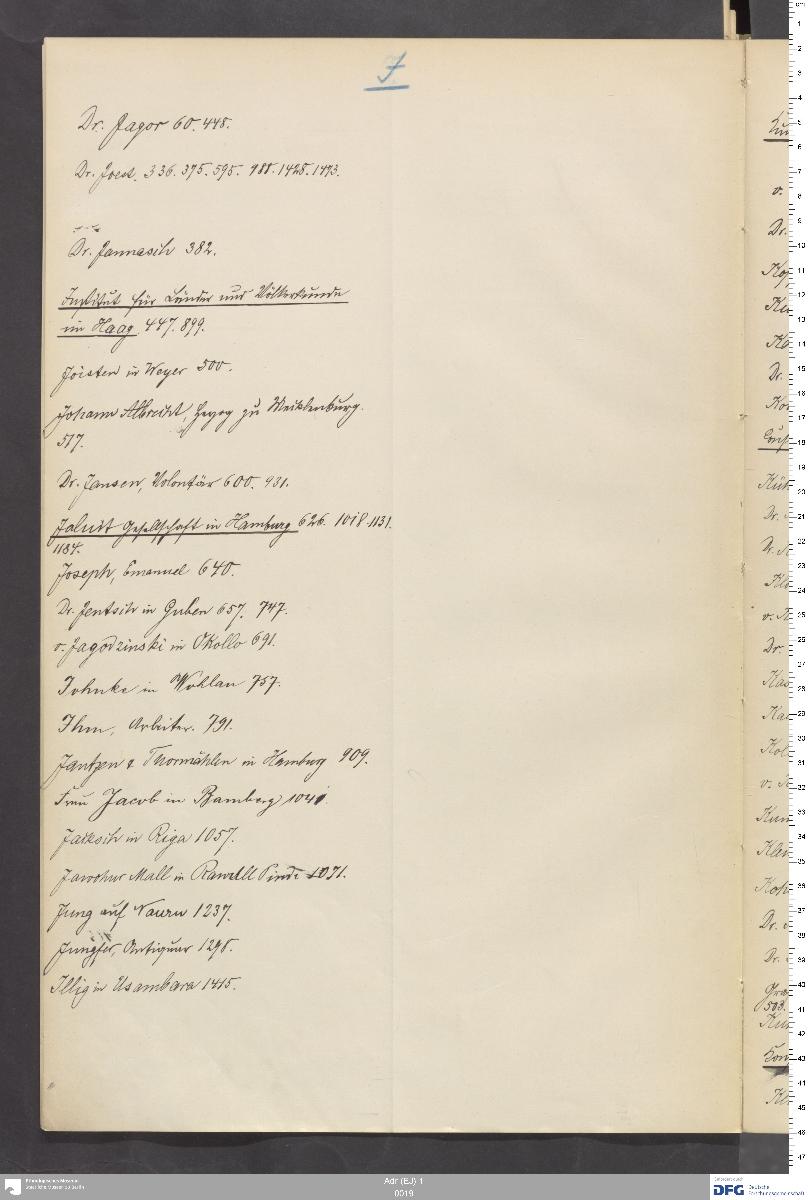 J.
Dr. Jagor 60. 448.
Dr. Joest. 336. 375. 595. 988. 1428. 1473.
Dr. Jannasch 382.
Institut für Länder und Völkerkunde
im Haag 447. 899.
Joisten in Weyer 500.
Johann Albrecht, Herzog zu Mecklenburg.
517.
Dr. Jansen, Volontär 600. 931.
Jaluit Gesellschaft in Hamburg 626. 1018. 1131.
1184.
Joseph, Emanuel 640.
Dr. Jentsch in Guben 657. 747.
v. Jagodzinski in Okollo 691.
Johnke in Wohlau 757.
Ihm, Arbeiter. 791.
Jantzen & Thormählen in Hamburg 909.
Frau Jacob in Bamberg 1041.
Jacksch in Riga 1057.
Jawohur Mall in Rawall Pindi 1071.
Jung auf Nauru 1237.
Jungfer, Antiquar 1298.
Illig in Usambara 1415.
Ethnologisches Museum
Staatliche Museen zu Berlin
Adr (EJ) 1
0019
DFG Deutsche
Forschungsgemeinschaft